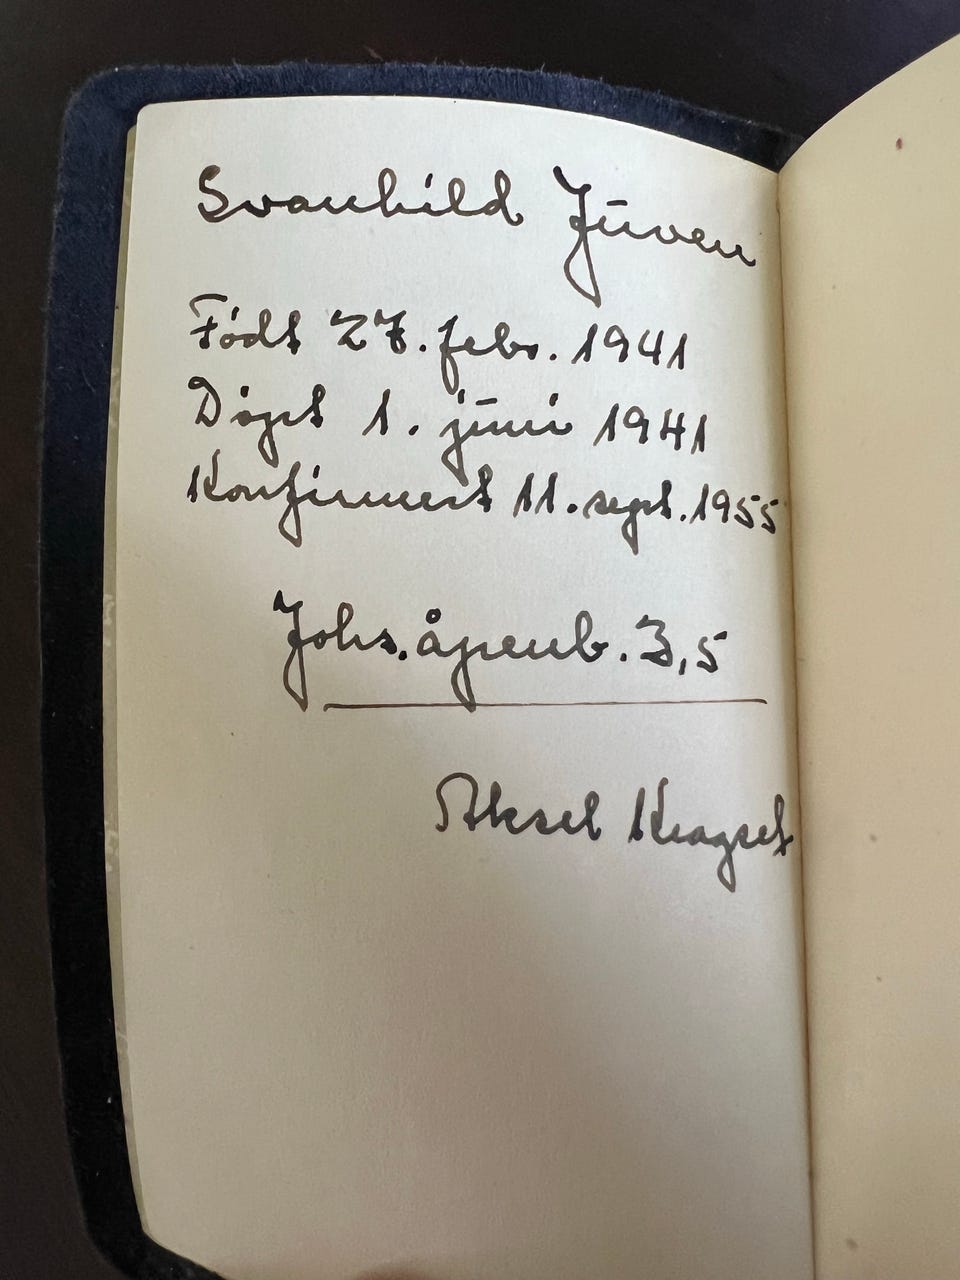 Svanhild Juven
Født 27. febr. 1941
Døpt 1. juni 1941
Konfirmert 11. sept. 1955
Johs. åpenb. 3,5
Aksel Kragset